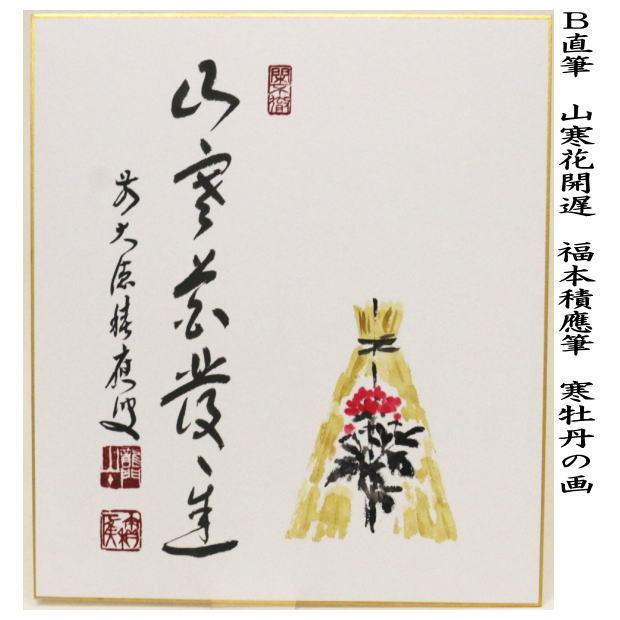 B直筆　山寒花開遅　福本積應筆　寒牡丹の画
山寒花發遅
前大徳積應叟